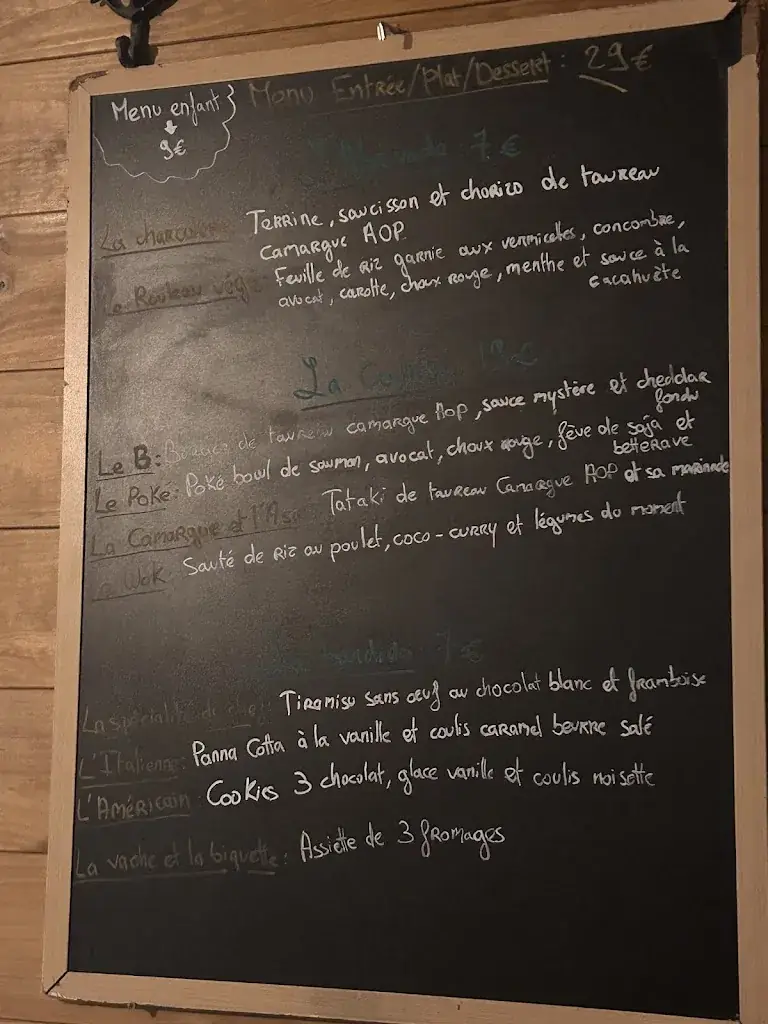 Menu enfant
9€
Menu Entrée/Plat/Dessert : 29€
7€
La Terrine, saucisson et chorizo de taureau
Camargue AOP
Le Rouleau Feuille de riz garnie aux vermicelles, concombre,
avocat, carotte, choux rouge, menthe et sauce à la
cacahuète
La
Le B: de taureau camargue AOP, sauce mystère et cheddar
fondu
Le Poké: Poké bowl de saumon, avocat, choux rouge, fève de soja et
betterave
La Camargue et l'Asie Tataki de taureau Camargue AOP et sa marinade
Wok Sauté de riz au poulet, coco-curry et légumes du moment
7€
La spécialité du chef: Tiramisu sans oeuf au chocolat blanc et framboise
L'Italienne: Panna Cotta à la vanille et coulis caramel beurre salé
L'Américain: Cookies 3 chocolat, glace vanille et coulis noisette
La vache et la biquette: Assiette de 3 fromages